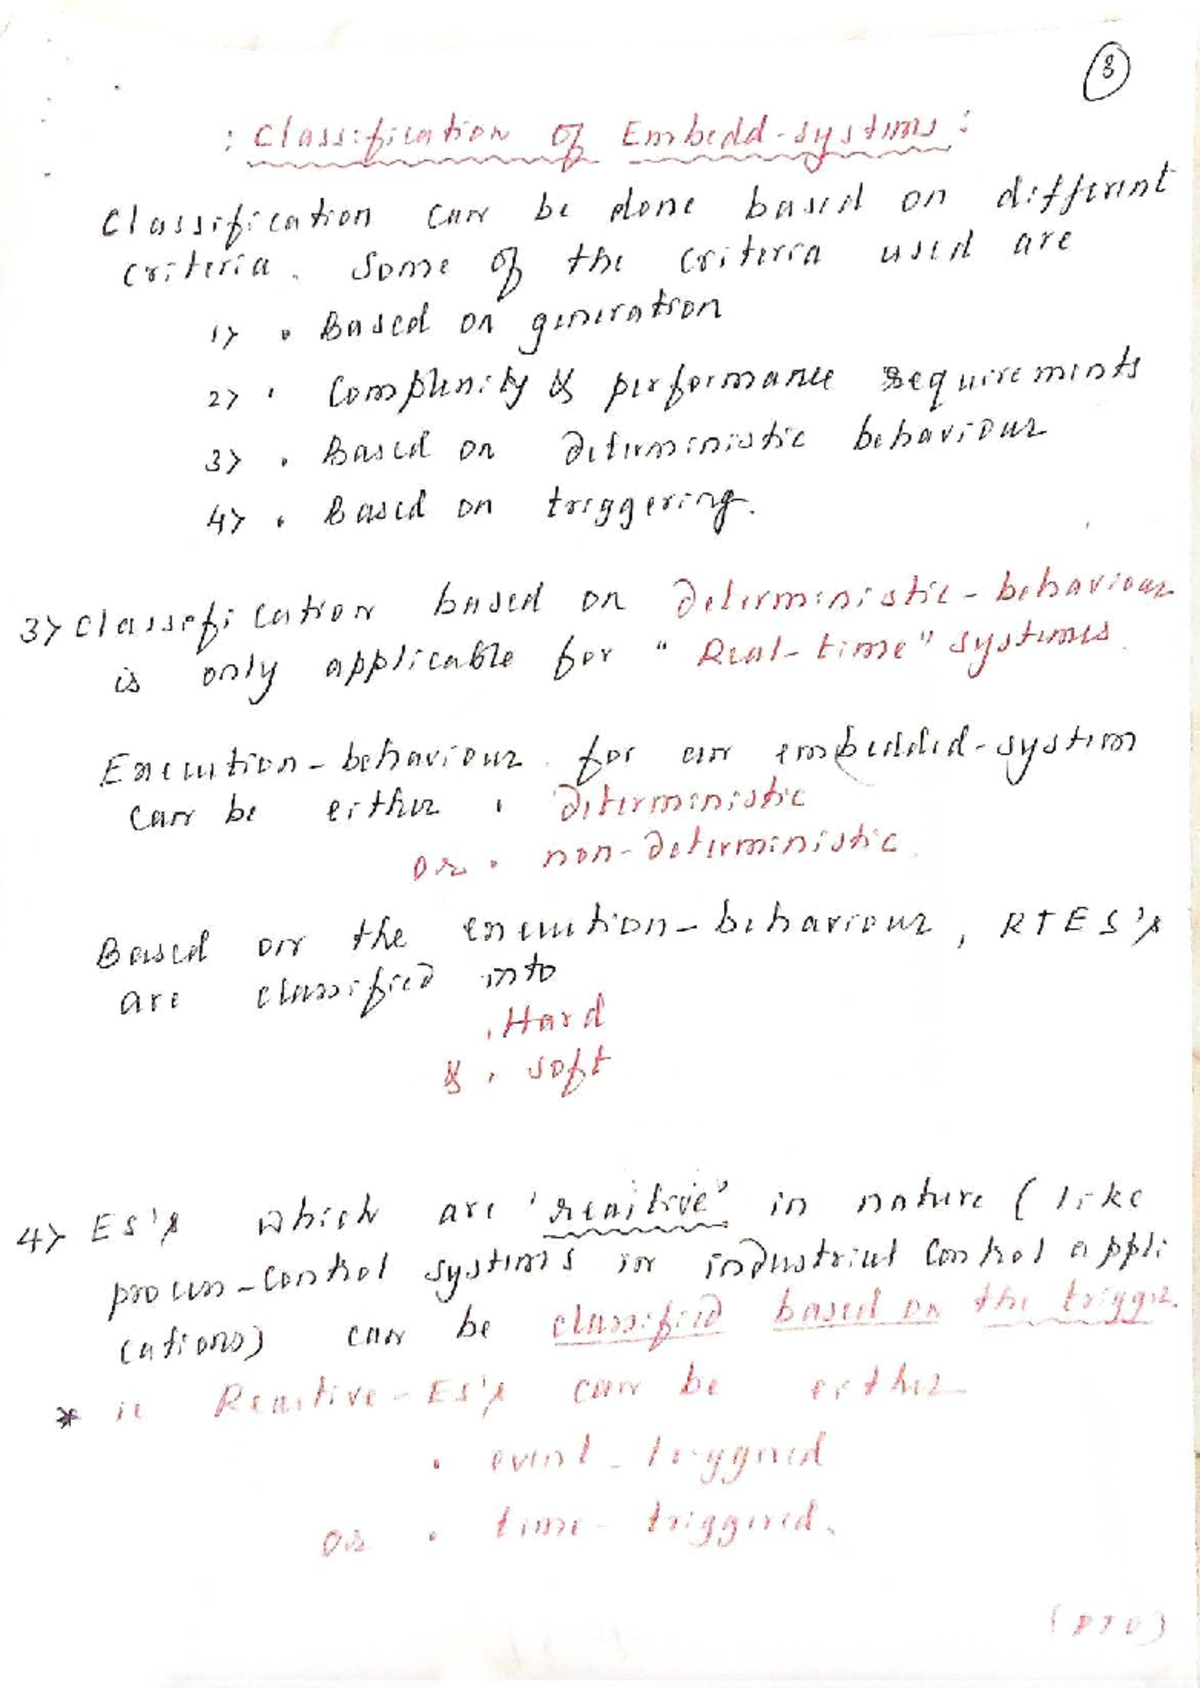 8
: Classification of Embedd-systems :
Classification can be done based on different
criteria. Some of the criteria used are
1) • Based on generation
2) • Complexity & performance requirements
3) • Based on deterministic behaviour
4) • Based on triggering.
3) Classification based on deterministic-behaviour
is only applicable for "Real-time" systems.
Execution-behaviour for an embedded-system
can be either • deterministic
or • non-deterministic.
Based on the execution-behaviour, RTES's
are classified into
• Hard
& • soft
4) ES's which are 'reactive' in nature (like
process-control systems in industrial control appli
cations) can be classified based on the trigger.
* ie Reactive-ES's can be either
• event-triggered
or • time-triggered.
(PTO)